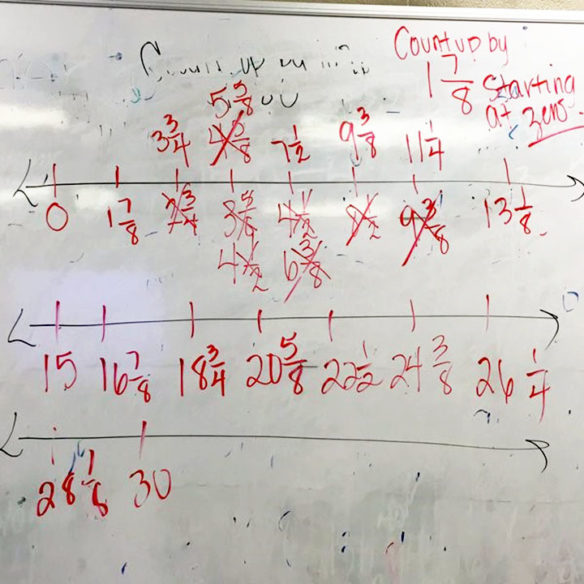 Count up by
1 7/8 starting
at zero
5 5/8
3 3/4 4 5/8 7 1/2 9 3/8 11 1/4
0 1 7/8 2 3/4 3 5/8 4 1/2 8 1/2 9 3/8 13 1/8
4 1/2 6 3/8
15 16 7/8 18 3/4 20 5/8 22 1/2 24 3/8 26 1/4
28 1/8 30